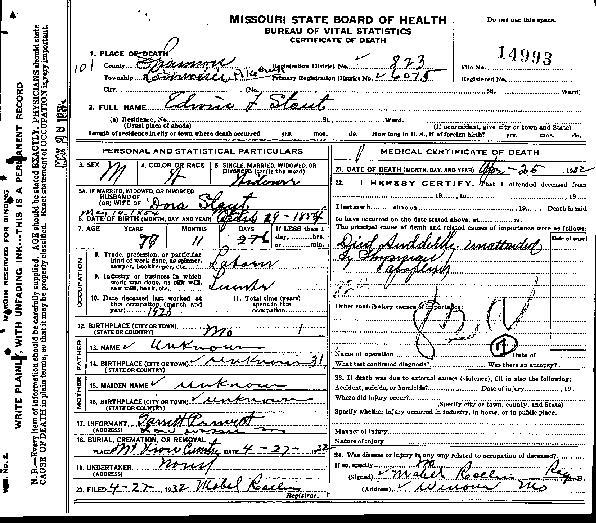 MISSOURI STATE BOARD OF HEALTH
BUREAU OF VITAL STATISTICS
CERTIFICATE OF DEATH
Do not use this space.
14993
1. PLACE OF DEATH
County Shannon Registration District No. 823 File No.
Township Primary Registration District No. 6075 Registered No.
City (No. St. Ward)
2. FULL NAME Edwin F Stout
(a) Residence, No. St. Ward.
(Usual place of abode) (If nonresident, give city or town and State)
Length of residence in city or town where death occurred yrs. mos. ds. How long in U. S., if of foreign birth? yrs. mos. ds.
PERSONAL AND STATISTICAL PARTICULARS
3. SEX M
4. COLOR OR RACE W
5. SINGLE, MARRIED, WIDOWED, OR DIVORCED (write the word) Widower
5A. IF MARRIED, WIDOWED, OR DIVORCED
HUSBAND OF
(OR) WIFE OF Dora Stout
6. DATE OF BIRTH (MONTH, DAY AND YEAR)
7. AGE YEARS MONTHS DAYS If LESS than 1 day, hrs. or min.
11
OCCUPATION
8. Trade, profession, or particular kind of work done, as spinner, sawyer, bookkeeper, etc. Laborer
9. Industry or business in which work was done, as silk mill, saw mill, bank, etc. Lumber
10. Date deceased last worked at this occupation (month and year)
11. Total time (years) spent in this occupation
12. BIRTHPLACE (CITY OR TOWN) Mo
(STATE OR COUNTRY)
FATHER
13. NAME Unknown
14. BIRTHPLACE (CITY OR TOWN) unknown 31
(STATE OR COUNTRY)
MOTHER
15. MAIDEN NAME unknown
16. BIRTHPLACE (CITY OR TOWN) unknown
(STATE OR COUNTRY)
17. INFORMANT
(ADDRESS)
18. BURIAL, CREMATION, OR REMOVAL
PLACE DATE 4-27-1932
19. UNDERTAKER None
(ADDRESS)
20. FILED 4-27 1932 Mabel
Registrar.
MEDICAL CERTIFICATE OF DEATH
21. DATE OF DEATH (MONTH, DAY, AND YEAR) Apr-26 1932
22. I HEREBY CERTIFY, That I attended deceased from
, 19 , to , 19
I last saw h alive on , 19 Death is said
to have occurred on the date stated above, at m.
The principal cause of death and related causes of importance were as follows:
Date of onset
Died Suddenly unattended
by Physician
Other contributory causes of importance:
Name of operation Date of
What test confirmed diagnosis? Was there an autopsy?
23. If death was due to external causes (violence), fill in also the following:
Accident, suicide, or homicide? Date of injury , 19
Where did injury occur?
(Specify city or town, county, and State)
Specify whether injury occurred in industry, in home, or in public place.
Manner of injury
Nature of injury
24. Was disease or injury in any way related to occupation of deceased?
If so, specify
(Signed) Mabel Reg
(Address) Winona Mo
MARGIN RESERVED FOR BINDING
WRITE PLAINLY, WITH UNFADING INK---THIS IS A PERMANENT RECORD
N. B.—Every item of information should be carefully supplied. AGE should be stated EXACTLY. PHYSICIANS should state
CAUSE OF DEATH in plain terms, so that it may be properly classified. Exact statement of OCCUPATION is very important.